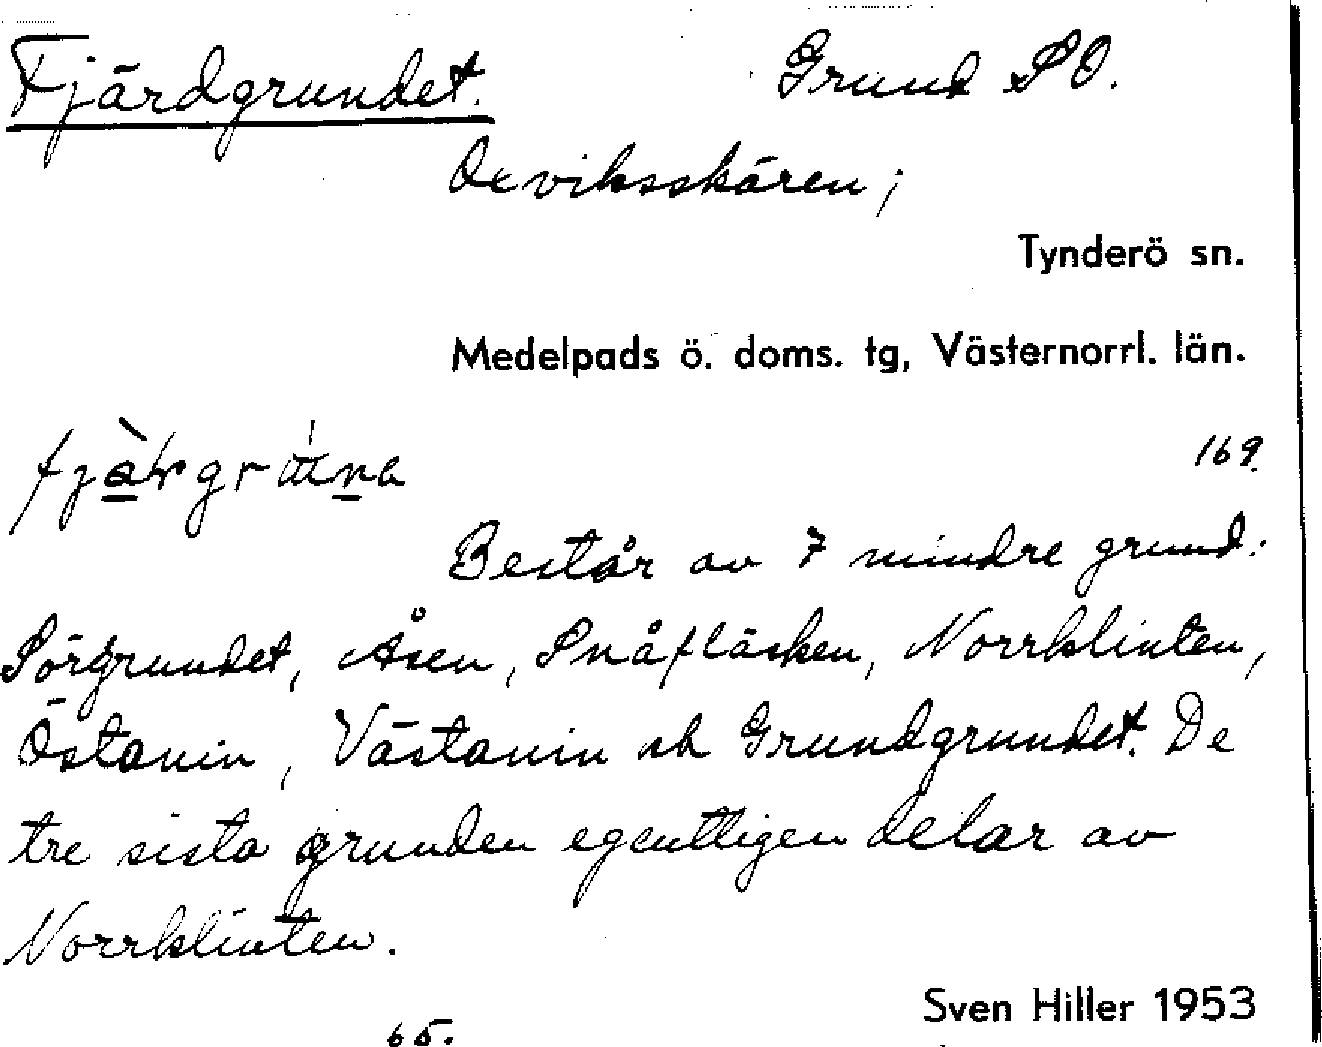 Fjärdgrundet. Grund SO.
Oxviksskären;
Tynderö sn.
Medelpads ö. doms. tg, Västernorrl. län.
169.
Består av 7 mindre grund:
Sörgrundet, Åsen, Snåfläsken, Norrklinten,
Östanin, Västanin och Grundgrundet. De
tre sista grunden egentligen delar av
Norrklinten.
Sven Hiller 1953
65.